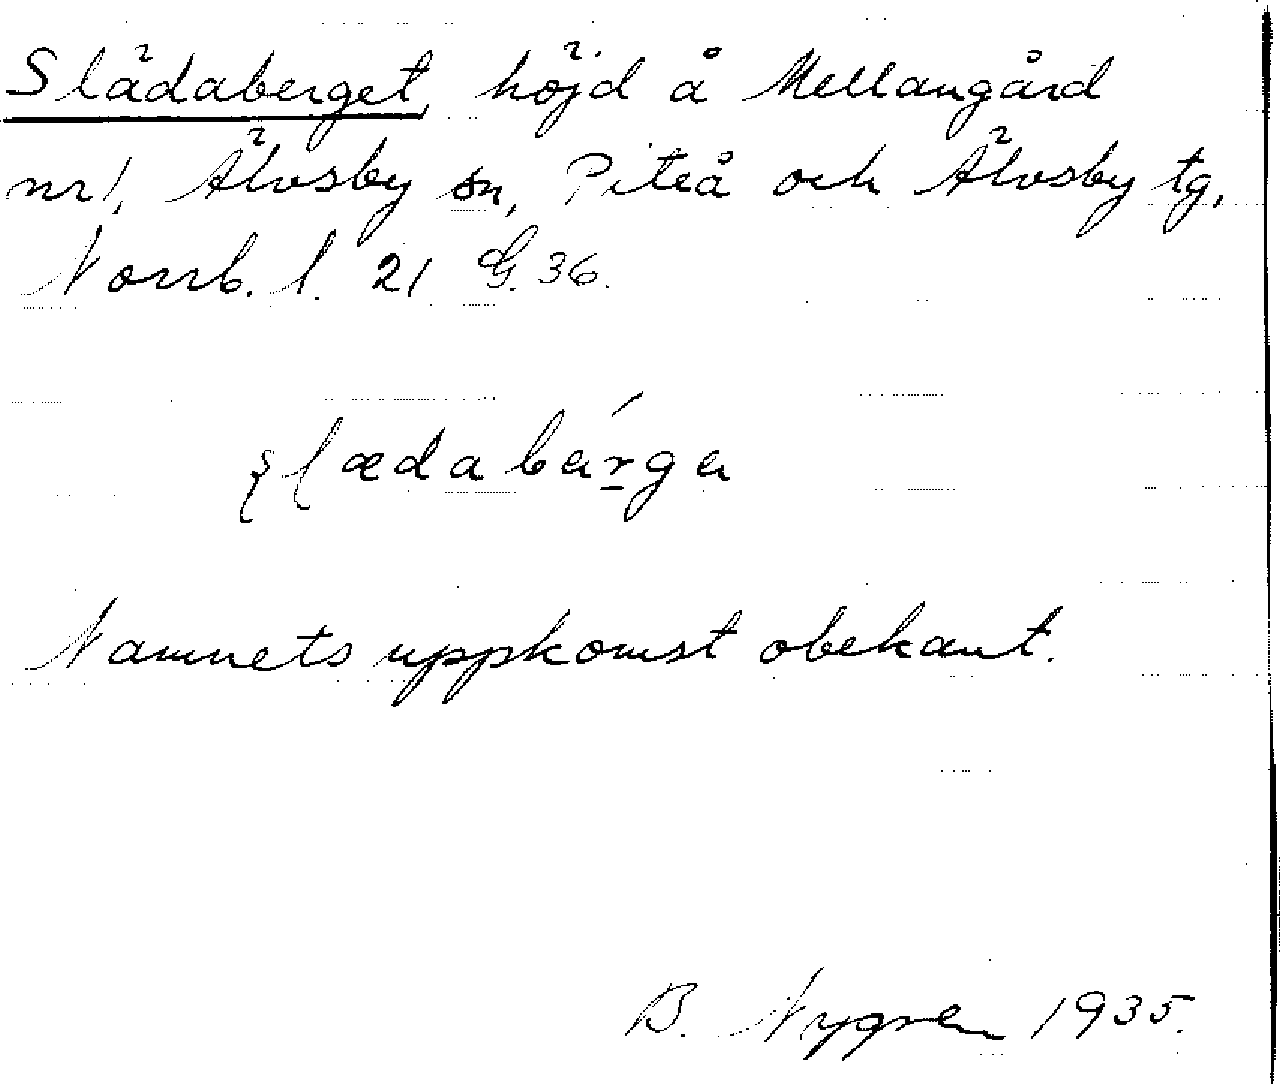 Slädaberget, höjd å Mellangård
nr 1, Älvsby sn, Piteå och Älvsby tg,
Norrb. l. 21 G. 36.
ʂlædabárga
Namnets uppkomst obekant.
B. Nygren 1935.